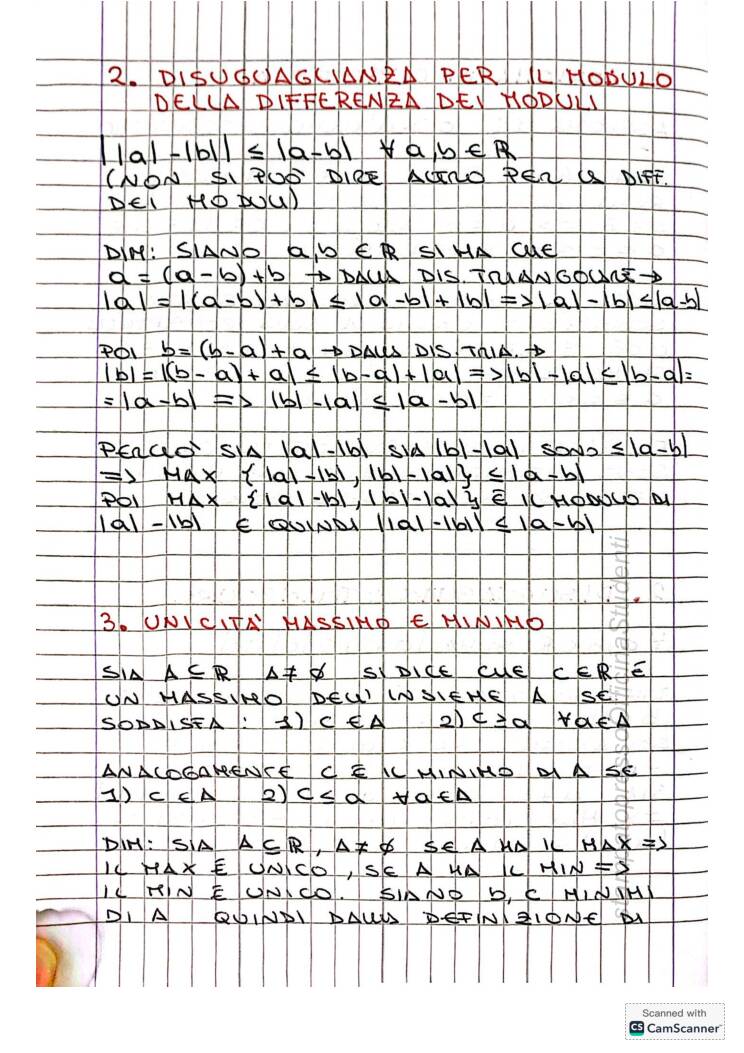 2. DISUGUAGLIANZA PER IL MODULO
DELLA DIFFERENZA DEI MODULI
||a| -|b|| ≤ |a-b| ∀ a,b ∈ ℝ
(NON SI PUÒ DIRE ALTRO PER LA DIFF.
DEI MODULI)
DIM: SIANO a,b ∈ ℝ SI HA CHE
a = (a-b)+b → DALLA DIS. TRIANGOLARE →
|a| = |(a-b)+b| ≤ |a-b|+|b| => |a|-|b| ≤ |a-b|
POI b=(b-a)+a → DALLA DIS. TRIA. →
|b| = |(b-a)+a| ≤ |b-a|+|a| => |b|-|a| ≤ |b-a| =
= |a-b| => |b|-|a| ≤ |a-b|
PERCIÒ SIA |a|-|b| SIA |b|-|a| SONO ≤ |a-b|
=> MAX {|a|-|b|, |b|-|a|} ≤ |a-b|
POI MAX {|a|-|b|, |b|-|a|} È IL MODULO DI
|a|-|b| E QUINDI ||a|-|b|| ≤ |a-b|
3. UNICITÀ MASSIMO E MINIMO
SIA A ⊆ ℝ A ≠ ∅ SI DICE CHE C ∈ ℝ È
UN MASSIMO DELL'INSIEME A SE
SODDISFA: 1) C ∈ A 2) C ≥ a ∀ a ∈ A
ANALOGAMENTE C È IL MINIMO DI A SE
1) C ∈ A 2) C ≤ a ∀ a ∈ A
DIM: SIA A ⊆ ℝ, A ≠ ∅ SE A HA IL MAX =>
IL MAX È UNICO, SE A HA IL MIN =>
IL MIN È UNICO. SIANO b, c MINIMI
DI A QUINDI DALLA DEFINIZIONE DI
Scanned with
CS CamScanner